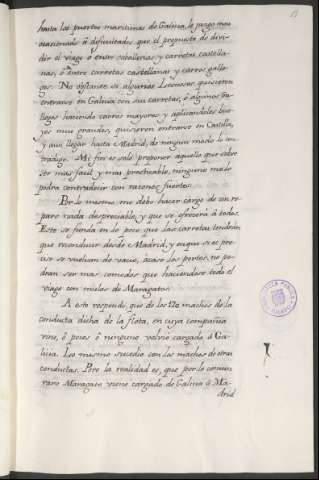 hasta los puertos maritimos de Galicia, le juzgo mas
ocasionado á dificultades que el proyecto de divi-
dir el viage ó entre caballerias y carretas castella-
nas, ó entre carretas castellanas y carros galle-
gos. No obstante si algunos Leoneses quisieren
entrarse en Galicia con sus carretas, ó algunos Ga-
llegos haciendo carros mayores y aplicandoles bue-
yes muy grandes, quisieren entrarse en Castilla,
y aun llegar hasta Madrid, de ningun modo lo con-
tradigo. Mi fin es solo proponer aquello que sobre
ser mas facil y mas practicable, ninguno me lo
podra contradecir con razones fuertes.
Por lo mismo me debo hacer cargo de un re-
paro nada despreciable, y que se ofrecerá á todos.
Este se funda en lo poco que las carretas tendrán
que reconducir desde Madrid, y aquí si es pre-
ciso se vuelvan de vacio, acaso los portes no po-
drán ser mas comodos que haciendose todo el
viage con mulas de Maragatos.
A esto respondo, que de los 120 machos de la
conducta dicha de la flota, en cuya compañia
vine, ó pocos ó ninguno volvió cargado á Ga-
licia. Lo mismo sucedió con los machos de otras
conductas. Pero la realidad es, que por lo comun
raro Maragato viene cargado de Galicia á Ma-
drid